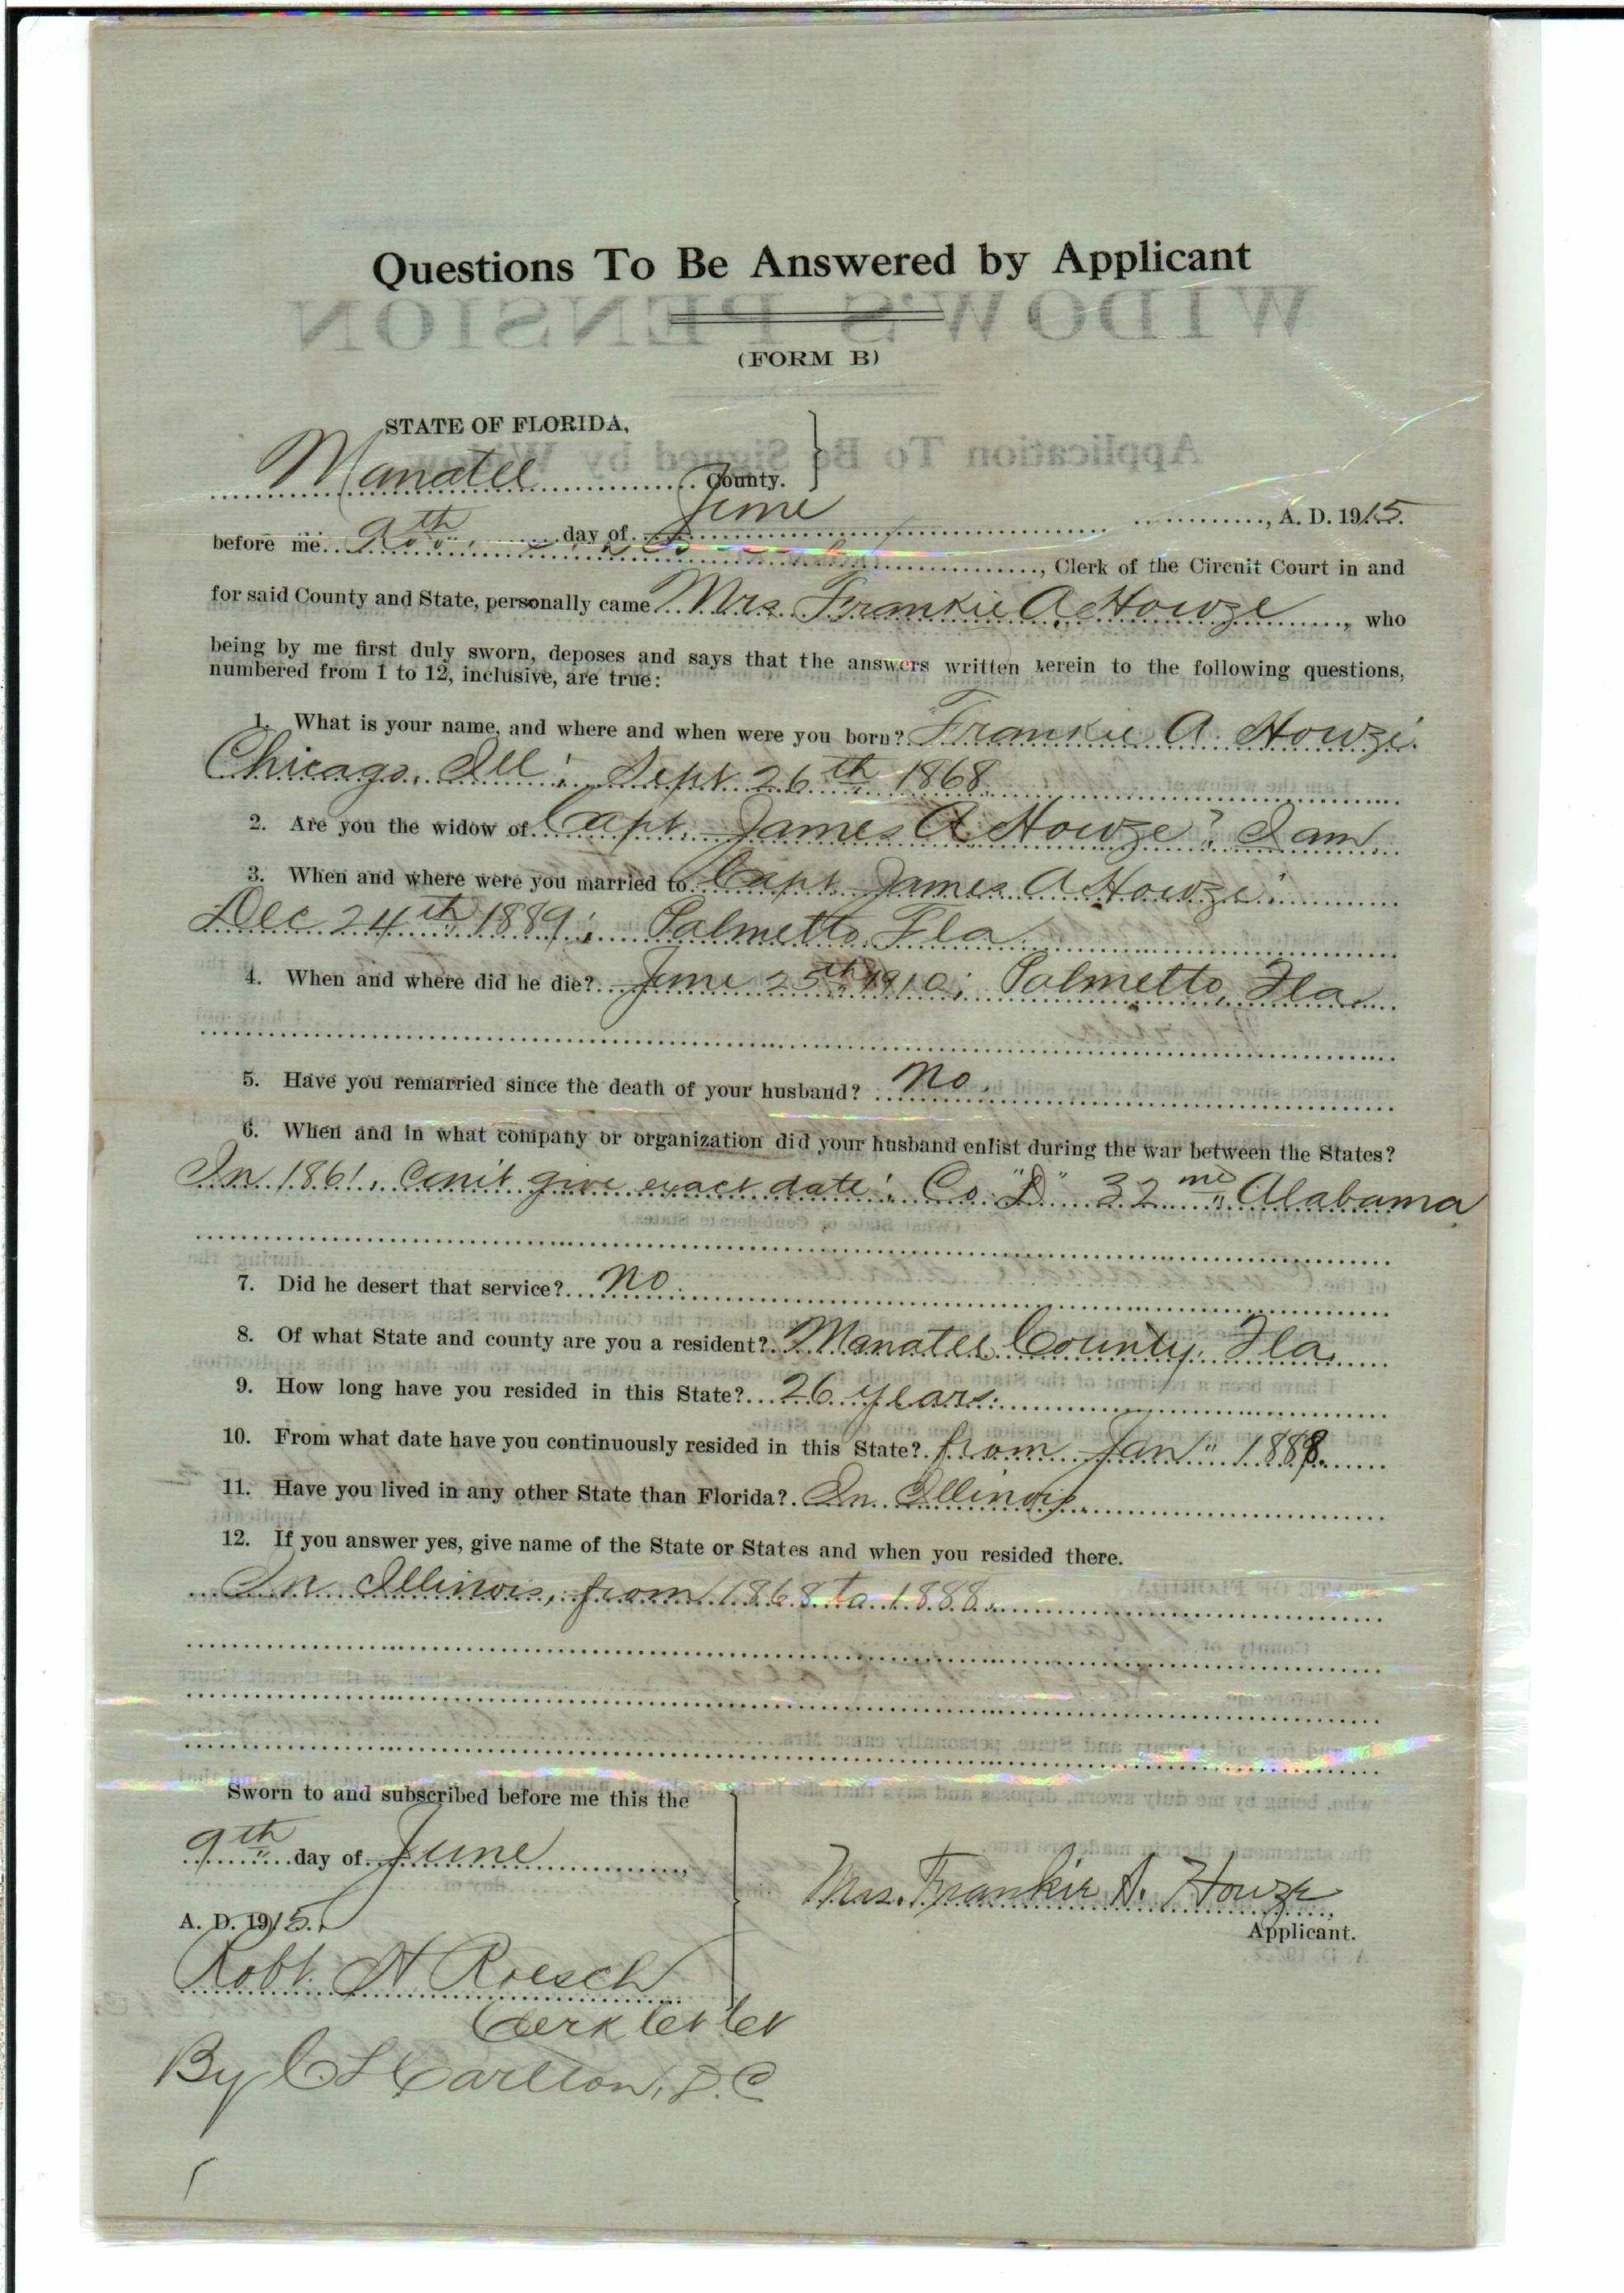 Questions To Be Answered by Applicant
(FORM B)
STATE OF FLORIDA,
Manatee County.
before me 9th day of June, A. D. 1915.
, Clerk of the Circuit Court in and
for said County and State, personally came Mrs Frankie A. Howze, who
being by me first duly sworn, deposes and says that the answers written herein to the following questions,
numbered from 1 to 12, inclusive, are true:
1. What is your name, and where and when were you born? Frankie A. Howze.
Chicago, Ill; Sept 26th 1868
2. Are you the widow of Capt. James A Howze? I am.
3. When and where were you married to Capt James A Howze?
Dec 24th 1889; Palmetto, Fla.
4. When and where did he die? June 25th 1910; Palmetto, Fla.
5. Have you remarried since the death of your husband? No.
6. When and in what company or organization did your husband enlist during the war between the States?
In 1861, Can't give exact date; Co. "D" 32nd Alabama
7. Did he desert that service? No.
8. Of what State and county are you a resident? Manatee County, Fla.
9. How long have you resided in this State? 26 years.
10. From what date have you continuously resided in this State? from Jan" 1888.
11. Have you lived in any other State than Florida? In Illinois.
12. If you answer yes, give name of the State or States and when you resided there.
In Illinois, from 1868 to 1888.
Sworn to and subscribed before me this the
9th day of June,
A. D. 1915.
Mrs. Frankie A. Howze,
Applicant.
Robt. H Roesch
Clerk Cir Ct
By C L Carlton, D. C